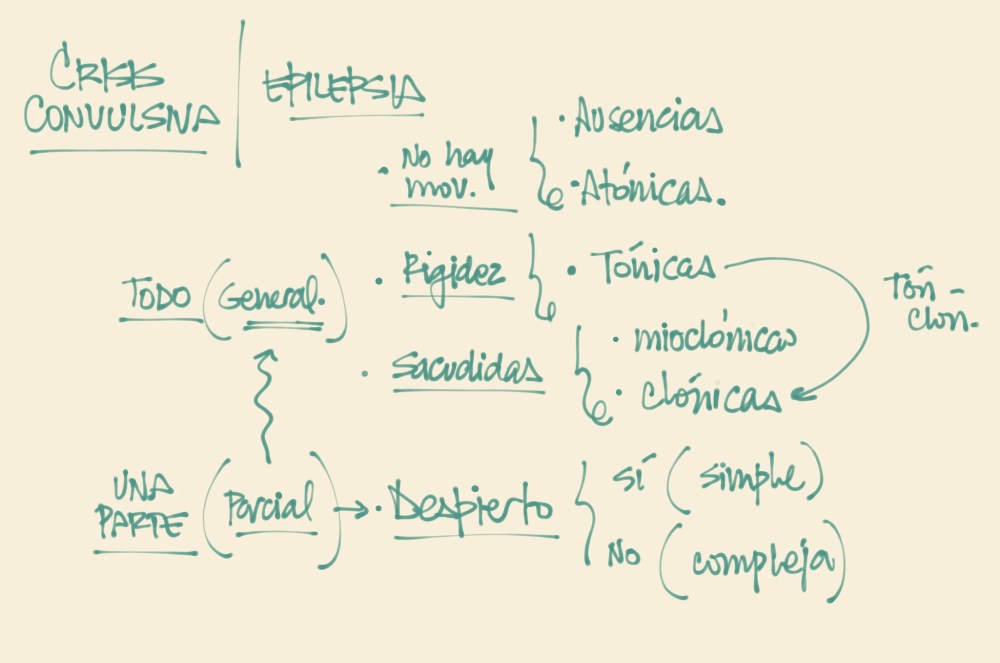 CRISIS
CONVULSIVA
EPILEPSIA
· No hay
mov.
· Ausencias
· Atónicas.
TODO (General.)
· Rigidez
· Tónicas
Tón -
Clon.
· Sacudidas
· mioclónicas
· Clónicas
UNA
PARTE (Parcial)
· Despierto
SÍ (simple)
No (compleja)